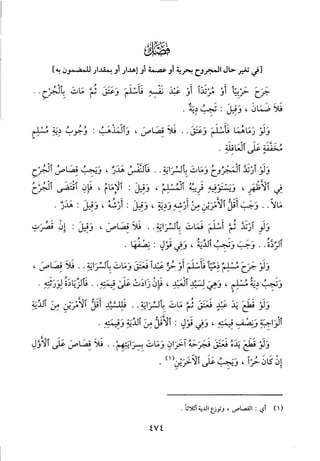 فَصْلٌ
[في تغير حال المجروح بحرية أو عصمة أو إهدار أو بمقدار للمضمون به]
جَرَحَ حَرْبِيّاً أَوْ مُرْتَدّاً أَوْ عَبْدَ نَفْسِهِ فَأَسْلَمَ وَعَتَقَ ثُمَّ مَاتَ بِالْجُرْحِ..
فَلاَ ضَمَانَ ، وَقِيلَ : تَجِبُ دِيَةٌ .
وَلَوْ رَمَاهُمَا فَأَسْلَمَ وَعَتَقَ.. فَلاَ قِصَاصَ ، وَالْمَذْهَبُ : وُجُوبُ دِيَةِ مُسْلِمٍ
مُخَفَّفَةٍ عَلَى الْعَاقِلَةِ .
وَلَوِ ارْتَدَّ الْمَجْرُوحُ وَمَاتَ بِالسِّرَايَةِ.. فَالنَّفْسُ هَدَرٌ ، وَيَجِبُ قِصَاصُ الْجُرْحِ
فِي الأَظْهَرِ ، يَسْتَوْفِيهِ قَرِيبُهُ الْمُسْلِمُ ، وَقِيلَ : الإِمَامُ ، فَإِنِ اقْتَضَى الْجُرْحُ
مَالاً.. وَجَبَ أَقَلُّ الأَمْرَيْنِ مِنْ أَرْشِهِ وَدِيَةٍ ، وَقِيلَ : أَرْشُهُ ، وَقِيلَ : هَدَرٌ .
وَلَوِ ارْتَدَّ ثُمَّ أَسْلَمَ فَمَاتَ بِالسِّرَايَةِ.. فَلاَ قِصَاصَ ، وَقِيلَ : إِنْ قَصُرَتِ
الرِّدَّةُ.. وَجَبَ وَتَجِبُ الدِّيَةُ ، وَفِي قَوْلٍ : نِصْفُهَا .
وَلَوْ جَرَحَ مُسْلِمٌ ذِمِّيّاً فَأَسْلَمَ أَوْ حُرٌّ عَبْداً فَعَتَقَ وَمَاتَ بِالسِّرَايَةِ.. فَلاَ قِصَاصَ ،
وَتَجِبُ دِيَةُ مُسْلِمٍ ، وَهِيَ لِسَيِّدِ الْعَبْدِ ، فَإِنْ زَادَتْ عَلَى قِيمَتِهِ.. فَالزِّيَادَةُ لِوَرَثَتِهِ .
وَلَوْ قَطَعَ يَدَ عَبْدٍ فَعَتَقَ ثُمَّ مَاتَ بِالسِّرَايَةِ.. فَلِلسَّيِّدِ أَقَلُّ الأَمْرَيْنِ مِنَ الدِّيَةِ
الْوَاجِبَةِ وَنِصْفِ قِيمَتِهِ ، وَفِي قَوْلٍ : الأَقَلُّ مِنَ الدِّيَةِ وَقِيمَتِهِ .
وَلَوْ قَطَعَ يَدَهُ فَعَتَقَ فَجَرَحَهُ آخَرَانِ وَمَاتَ بِسِرَايَتِهِمْ.. فَلاَ قِصَاصَ عَلَى الأَوَّلِ
إِنْ كَانَ حُرّاً ، وَيَجِبُ عَلَى الآخَرَيْنِ(١) .
(١) أي : القصاص ، وتوزع الدية أثلاثاً .
٤٧٤